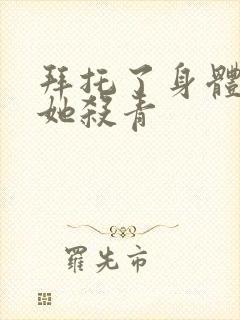 拜托了身體
她殺青
羅先市